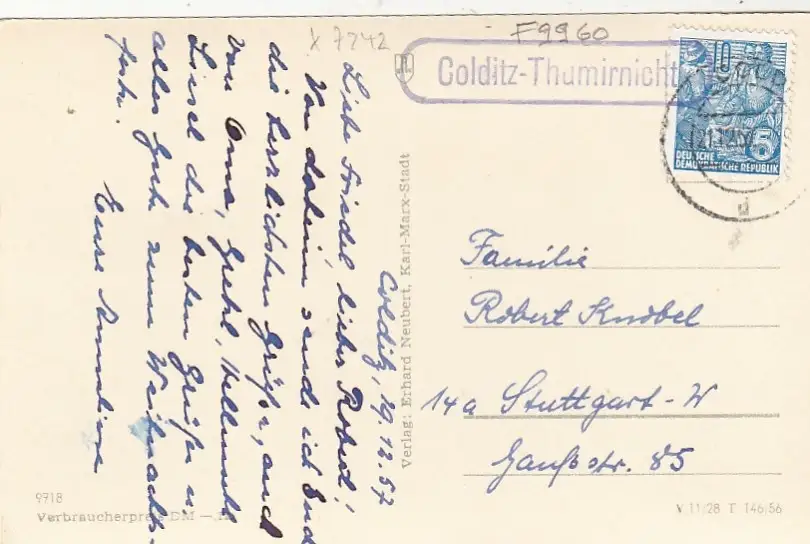 x 7242
F9960
Colditz-Thumirnicht
10
5
DEUTSCHE
DEMOKRATISCHE REPUBLIK
d
Colditz, 19.12.57
Liebe Friedel, lieber Robert!
Von daheim sende ich Euch
die herzlichsten Grüße, auch
von Oma, Gretel, Hellmuth
Liesel die besten Grüße u.
alles Gute zum Weihnachts-
feste.
Eure Anneliese
Verlag: Erhard Neubert, Karl-Marx-Stadt
Familie
Robert Knobel
14a Stuttgart-W
Gaußstr. 85
9918
Verbraucherpreis DM
V 11/28 T 146/56